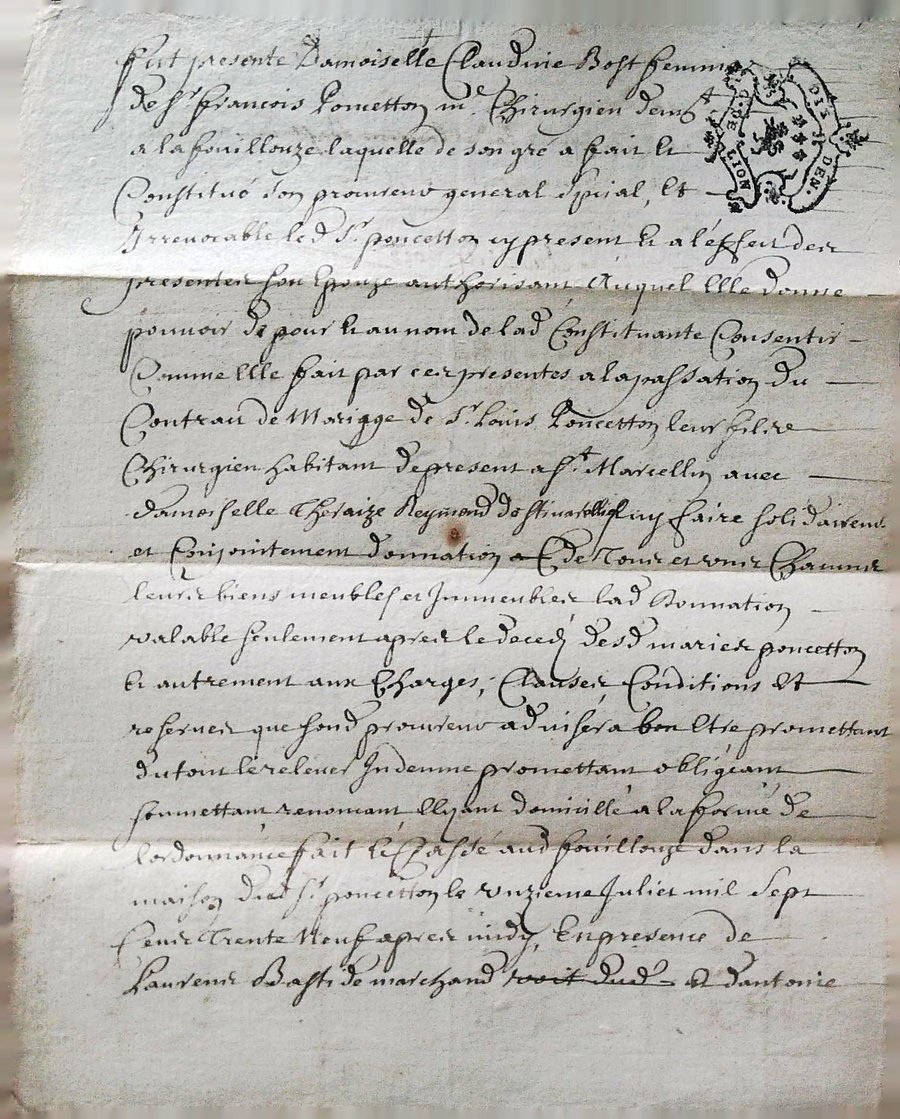 fut presente Damoiselle Claudine Bost femme
de Sr francois Poncetton md Chirurgien demt
a la fouillouze laquelle de son gré a fait et
Constitué son procureur general spcial, et
Irrevocable led Sr poncetton cy present et a l'effect des
presentes son Epouze authorisant Auquel Elle donne
pouvoir de pour et au nom de lad Constituante Consentir
Comme Elle fait par ces presentes a la passation du
Contract de Mariage de Sr Louis Poncetton leur fils
Chirurgien habitant de present a St Marcellin avec
damoiselle Theraize Reymond luy faire solidairemt
et Conjointement donnation de Tous et vnz Chacuns
leurs biens meubles et Immeubles lad Donnation
valable seulement apres le deced desd maries poncetton
et autrement aux Charges, Clauses, Conditions Et
reserves que sond procureur advisera bon Etre promettant
du tout le relever Indemne promettant obligeant
soumettant renoncant Elizant domicille a la forme de
l'ordonnance fait et passé aud fouillouze dans la
maison dud Sr poncetton le vnzieme Juliet mil sept
Cens Trente Neuf apres midy, En presence de
Laurens Bastide marchand dud Et d'antoine
NOIT G. DE
DEN.